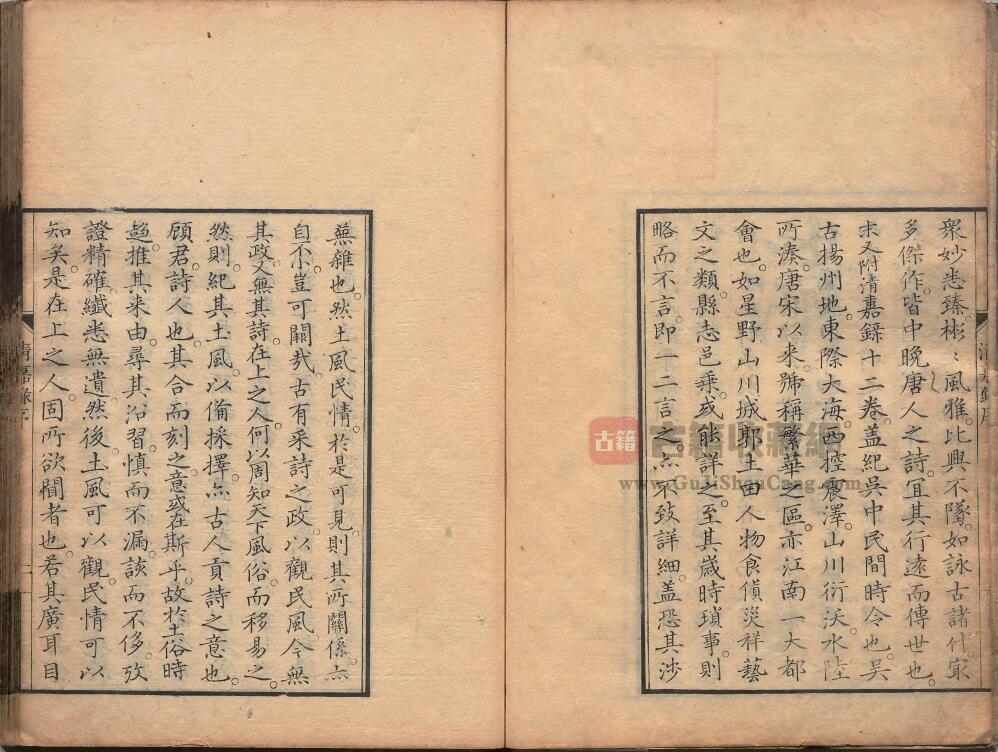 衆妙悉臻。彬〻風雅。比興不墜。如詠古諸什。㝡
多傑作。皆中晩唐人之詩。宜其行遠而傳世也。
末又附清嘉録十二卷。盖紀吳中民間時令也。吳
古揚州地。東際大海。西控震澤。山川衍沃。水陸
所湊。唐宋以来。號稱繁華之區。亦江南一大都
會也。如星野山川城郭土田人物食貨災祥藝
文之類。縣志邑乗。或能詳之。至其歳時瑣事。則
略而不言。即一二言之。亦不致詳細。盖恐其涉
蕪雜也。然土風民情。於是可見。則其所關係。亦
自不小。豈可闕哉。古有采詩之政。以觀民風。今無
其政。又無其詩。在上之人。何以周知天下風俗。而移易之。
然則紀其土風。以備採擇。亦古人貢詩之意也。
顧君詩人也。其合而刻之。意或在斯乎。故於土俗時
趍。推其来由。尋其沿習。慎而不漏。該而不侈。攷
證精確。纎悉無遺。然後土風可以觀。民情可以
知矣。是在上之人。固所欲聞者也。若其廣耳目
清嘉録序
古籍
古籍收藏網
www.GuJiShouCang.com